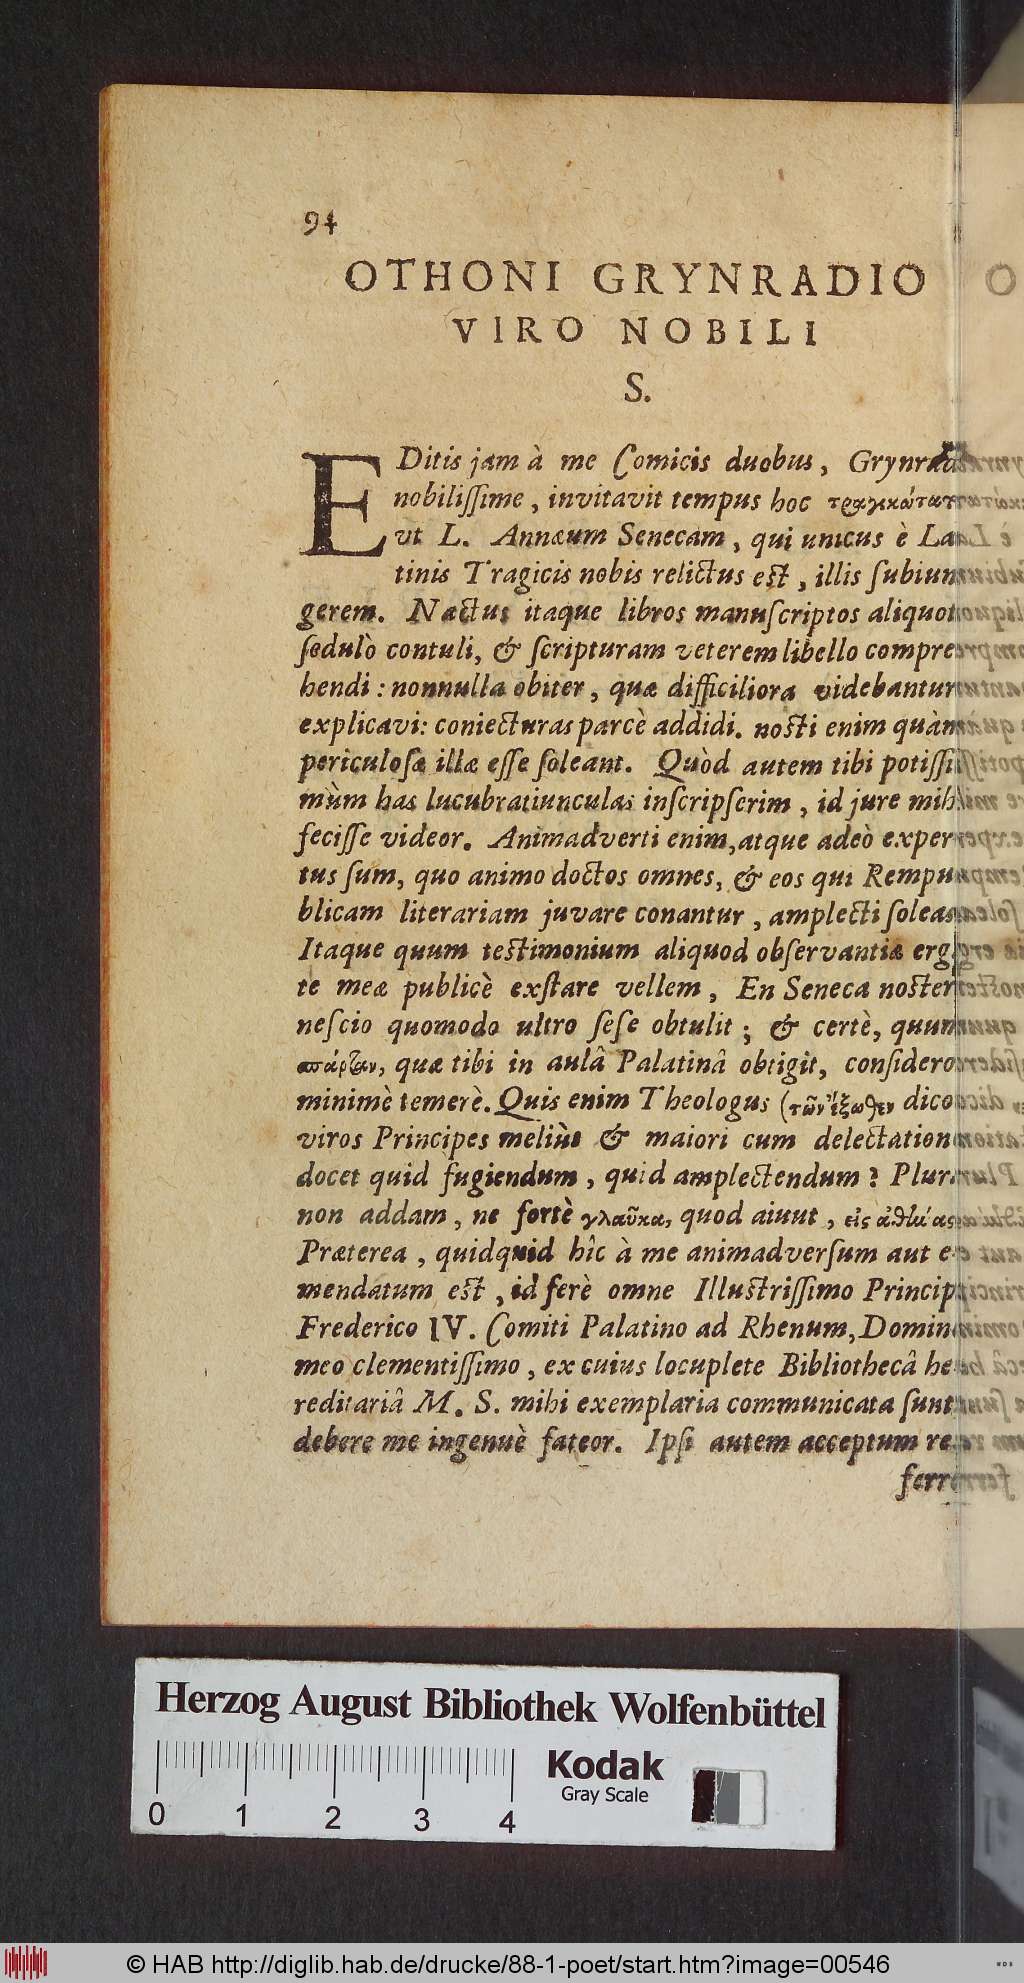 94
OTHONI GRYNRADIO
VIRO NOBILI
S.
EDitis jam à me Comicis duobus, Grynradi
nobilissime, invitavit tempus hoc
ut L. Annæum Senecam, qui unicus è La-
tinis Tragicis nobis relictus est, illis subiun-
gerem. Nactus itaque libros manuscriptos aliquot
sedulò contuli, & scripturam veterem libello compre-
hendi: nonnulla obiter, quæ difficiliora videbantur
explicavi: coniecturas parcè addidi. nosti enim quàm
periculosæ illæ esse soleant. Quòd autem tibi potissi-
mùm has lucubratiunculas inscripserim, id jure mihi
fecisse videor. Animadverti enim, atque adeò exper-
tus sum, quo animo doctos omnes, & eos qui Rempu-
blicam literariam juvare conantur, amplecti soleas.
Itaque quum testimonium aliquod observantiæ erga
te meæ publicè exstare vellem, En Seneca noster
nescio quomodo ultro sese obtulit; & certè, quum
σπάρταν, quæ tibi in aulâ Palatinâ obtigit, considero
minimè temerè. Quis enim Theologus (τῶν ἔξωθεν dico
viros Principes meliùs & maiori cum delectatione
docet quid fugiendum, quid amplectendum? Plura
non addam, ne fortè γλαῦκα, quod aiuut, εἰς ἀθήνας
Præterea, quidquid hîc à me animadversum aut e-
mendatum est, id ferè omne Illustrissimo Principi
Frederico IV. Comiti Palatino ad Rhenum, Domino
meo clementissimo, ex cuius locuplete Bibliothecâ he-
reditariâ M. S. mihi exemplaria communicata sunt
debere me ingenuè fateor. Ipsi autem acceptum re-
ferre
Herzog August Bibliothek Wolfenbüttel
Kodak
Gray Scale
0 1 2 3 4
© HAB http://diglib.hab.de/drucke/88-1-poet/start.htm?image=00546